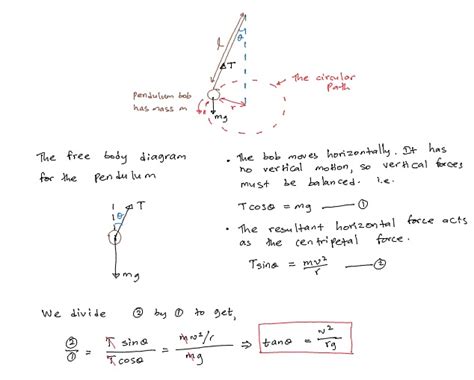 l
θ
T
The circular
path
pendulum bob
has mass m
r
mg
The free body diagram
for the pendulum
θ
T
mg
• The bob moves horizontally. It has
no vertical motion, so vertical forces
must be balanced. i.e.
Tcosθ = mg — ①
• The resultant horizontal force acts
as the centripetal force.
Tsinθ = mv²/r — ②
We divide ② by ① to get,
②/① = T sinθ / T cosθ = mv²/r / mg ⇒ tanθ = v²/rg